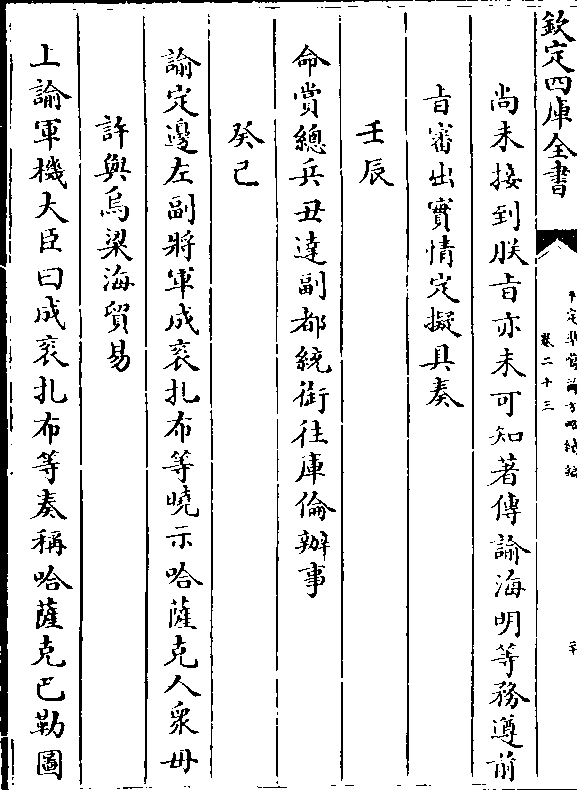 欽定四庫全書
平定準噶爾方略續編
卷二十三
尚未接到朕旨亦未可知著傳諭海明等務遵前
旨審出實情定擬具奏
壬辰
命賞總兵丑達副都統銜往庫倫辦事
癸已
諭定邊左副將軍成衮扎布等曉示哈薩克人衆毋
許與烏梁海貿易
上諭軍機大臣曰成衮扎布等奏稱哈薩克巴勒圖